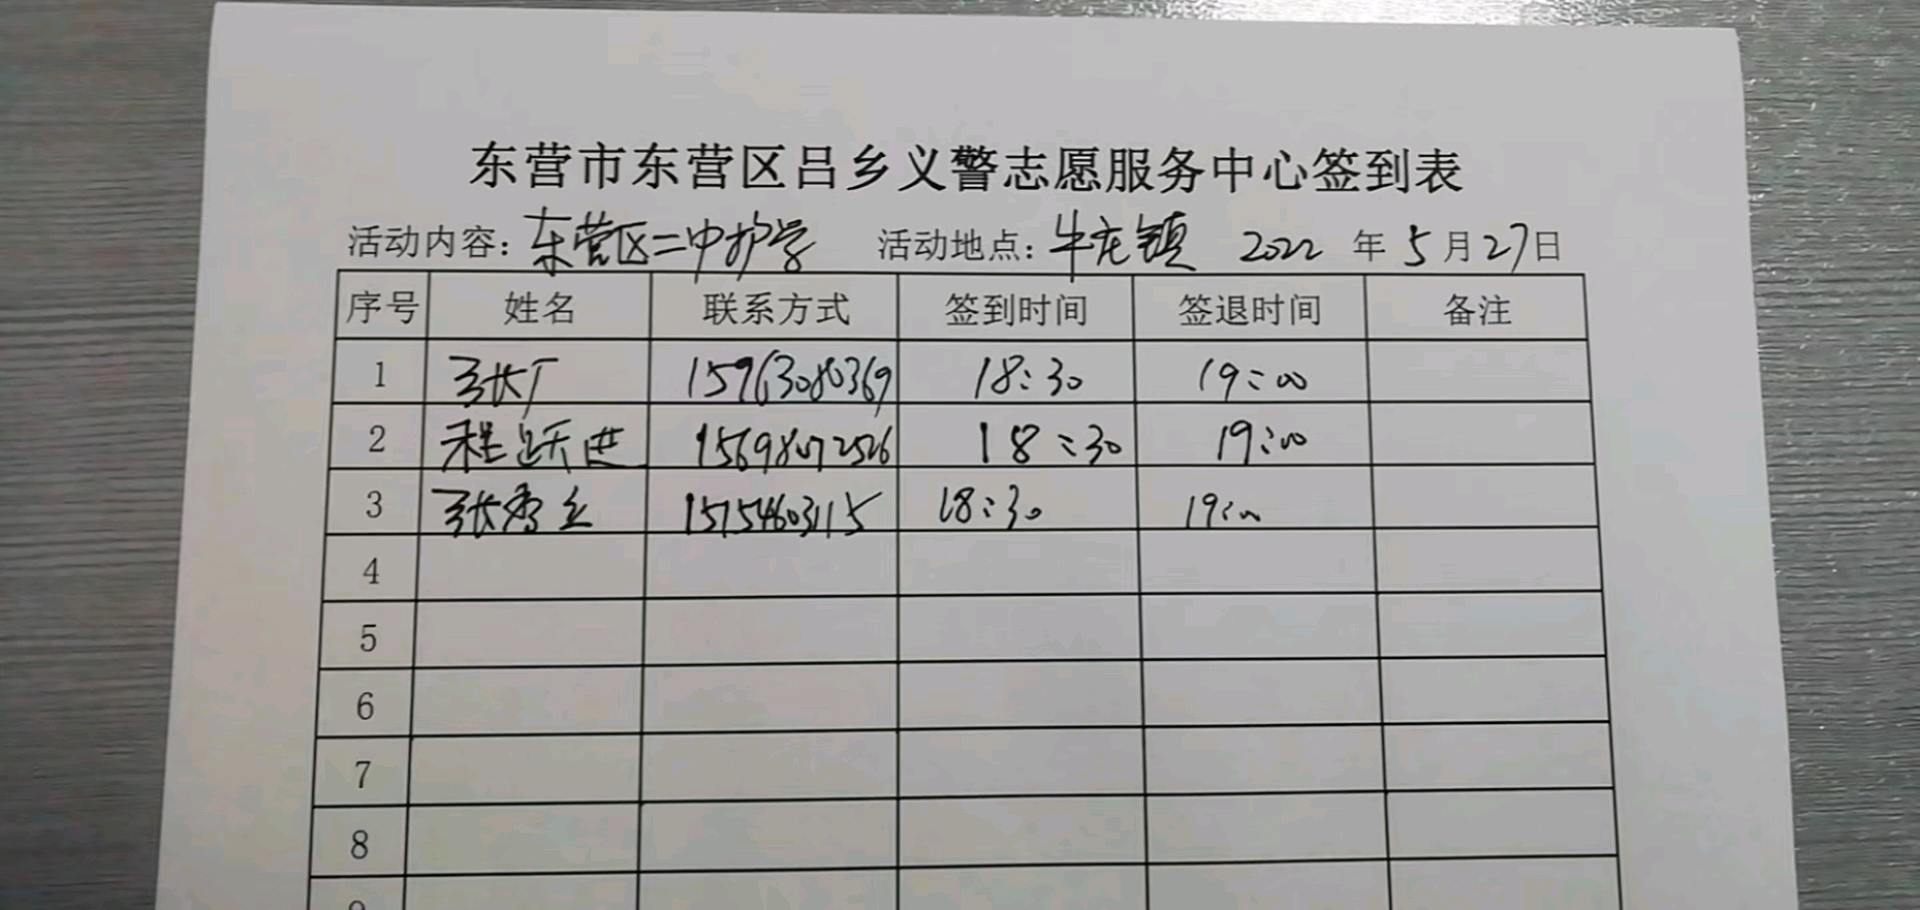 东营市东营区吕乡义警志愿服务中心签到表
活动内容：东营区二中护学 活动地点：牛庄镇 2022 年 5 月 27 日
序号 姓名 联系方式 签到时间 签退时间 备注
1 张广 15963080369 18:30 19:00
2 程跃进 15698072526 18:30 19:00
3 张秀兰 15754603115 18:30 19:00
4
5
6
7
8
9